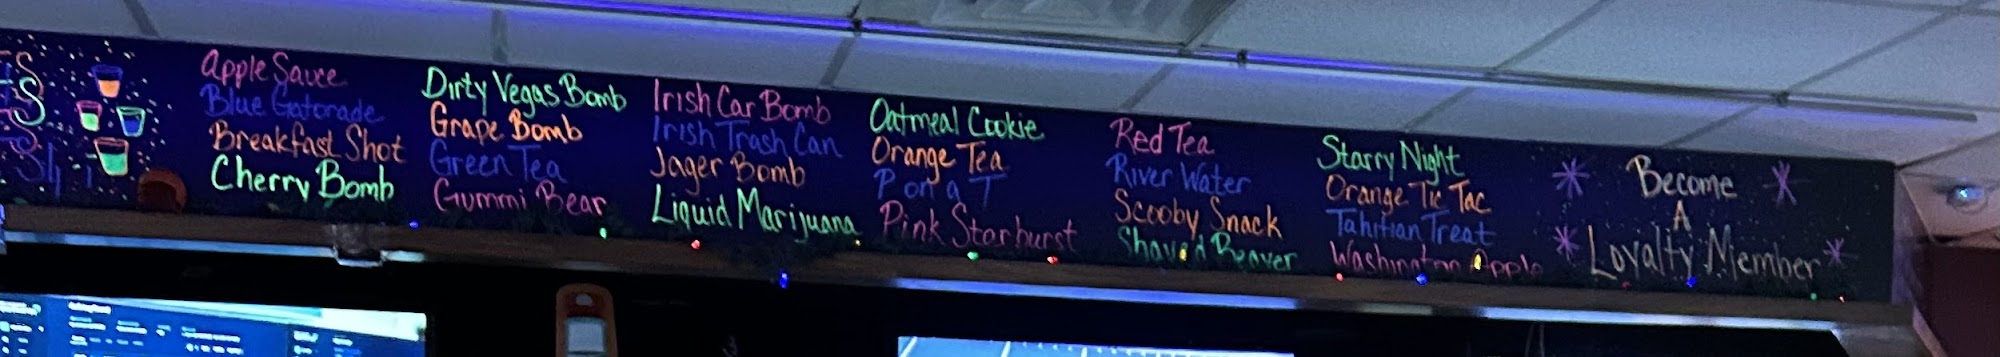 Apple Sauce
Blue Gatorade
Breakfast Shot
Cherry Bomb
Dirty Vegas Bomb
Grape Bomb
Green Tea
Gummi Bear
Irish Car Bomb
Irish Trash Can
Jager Bomb
Liquid Marijuana
Oatmeal Cookie
Orange Tea
P on a T
Pink Starburst
Red Tea
River Water
Scooby Snack
Shaved Beaver
Starry Night
Orange Tic Tac
Tahitian Treat
Washington Apple
Become
A
Loyalty Member